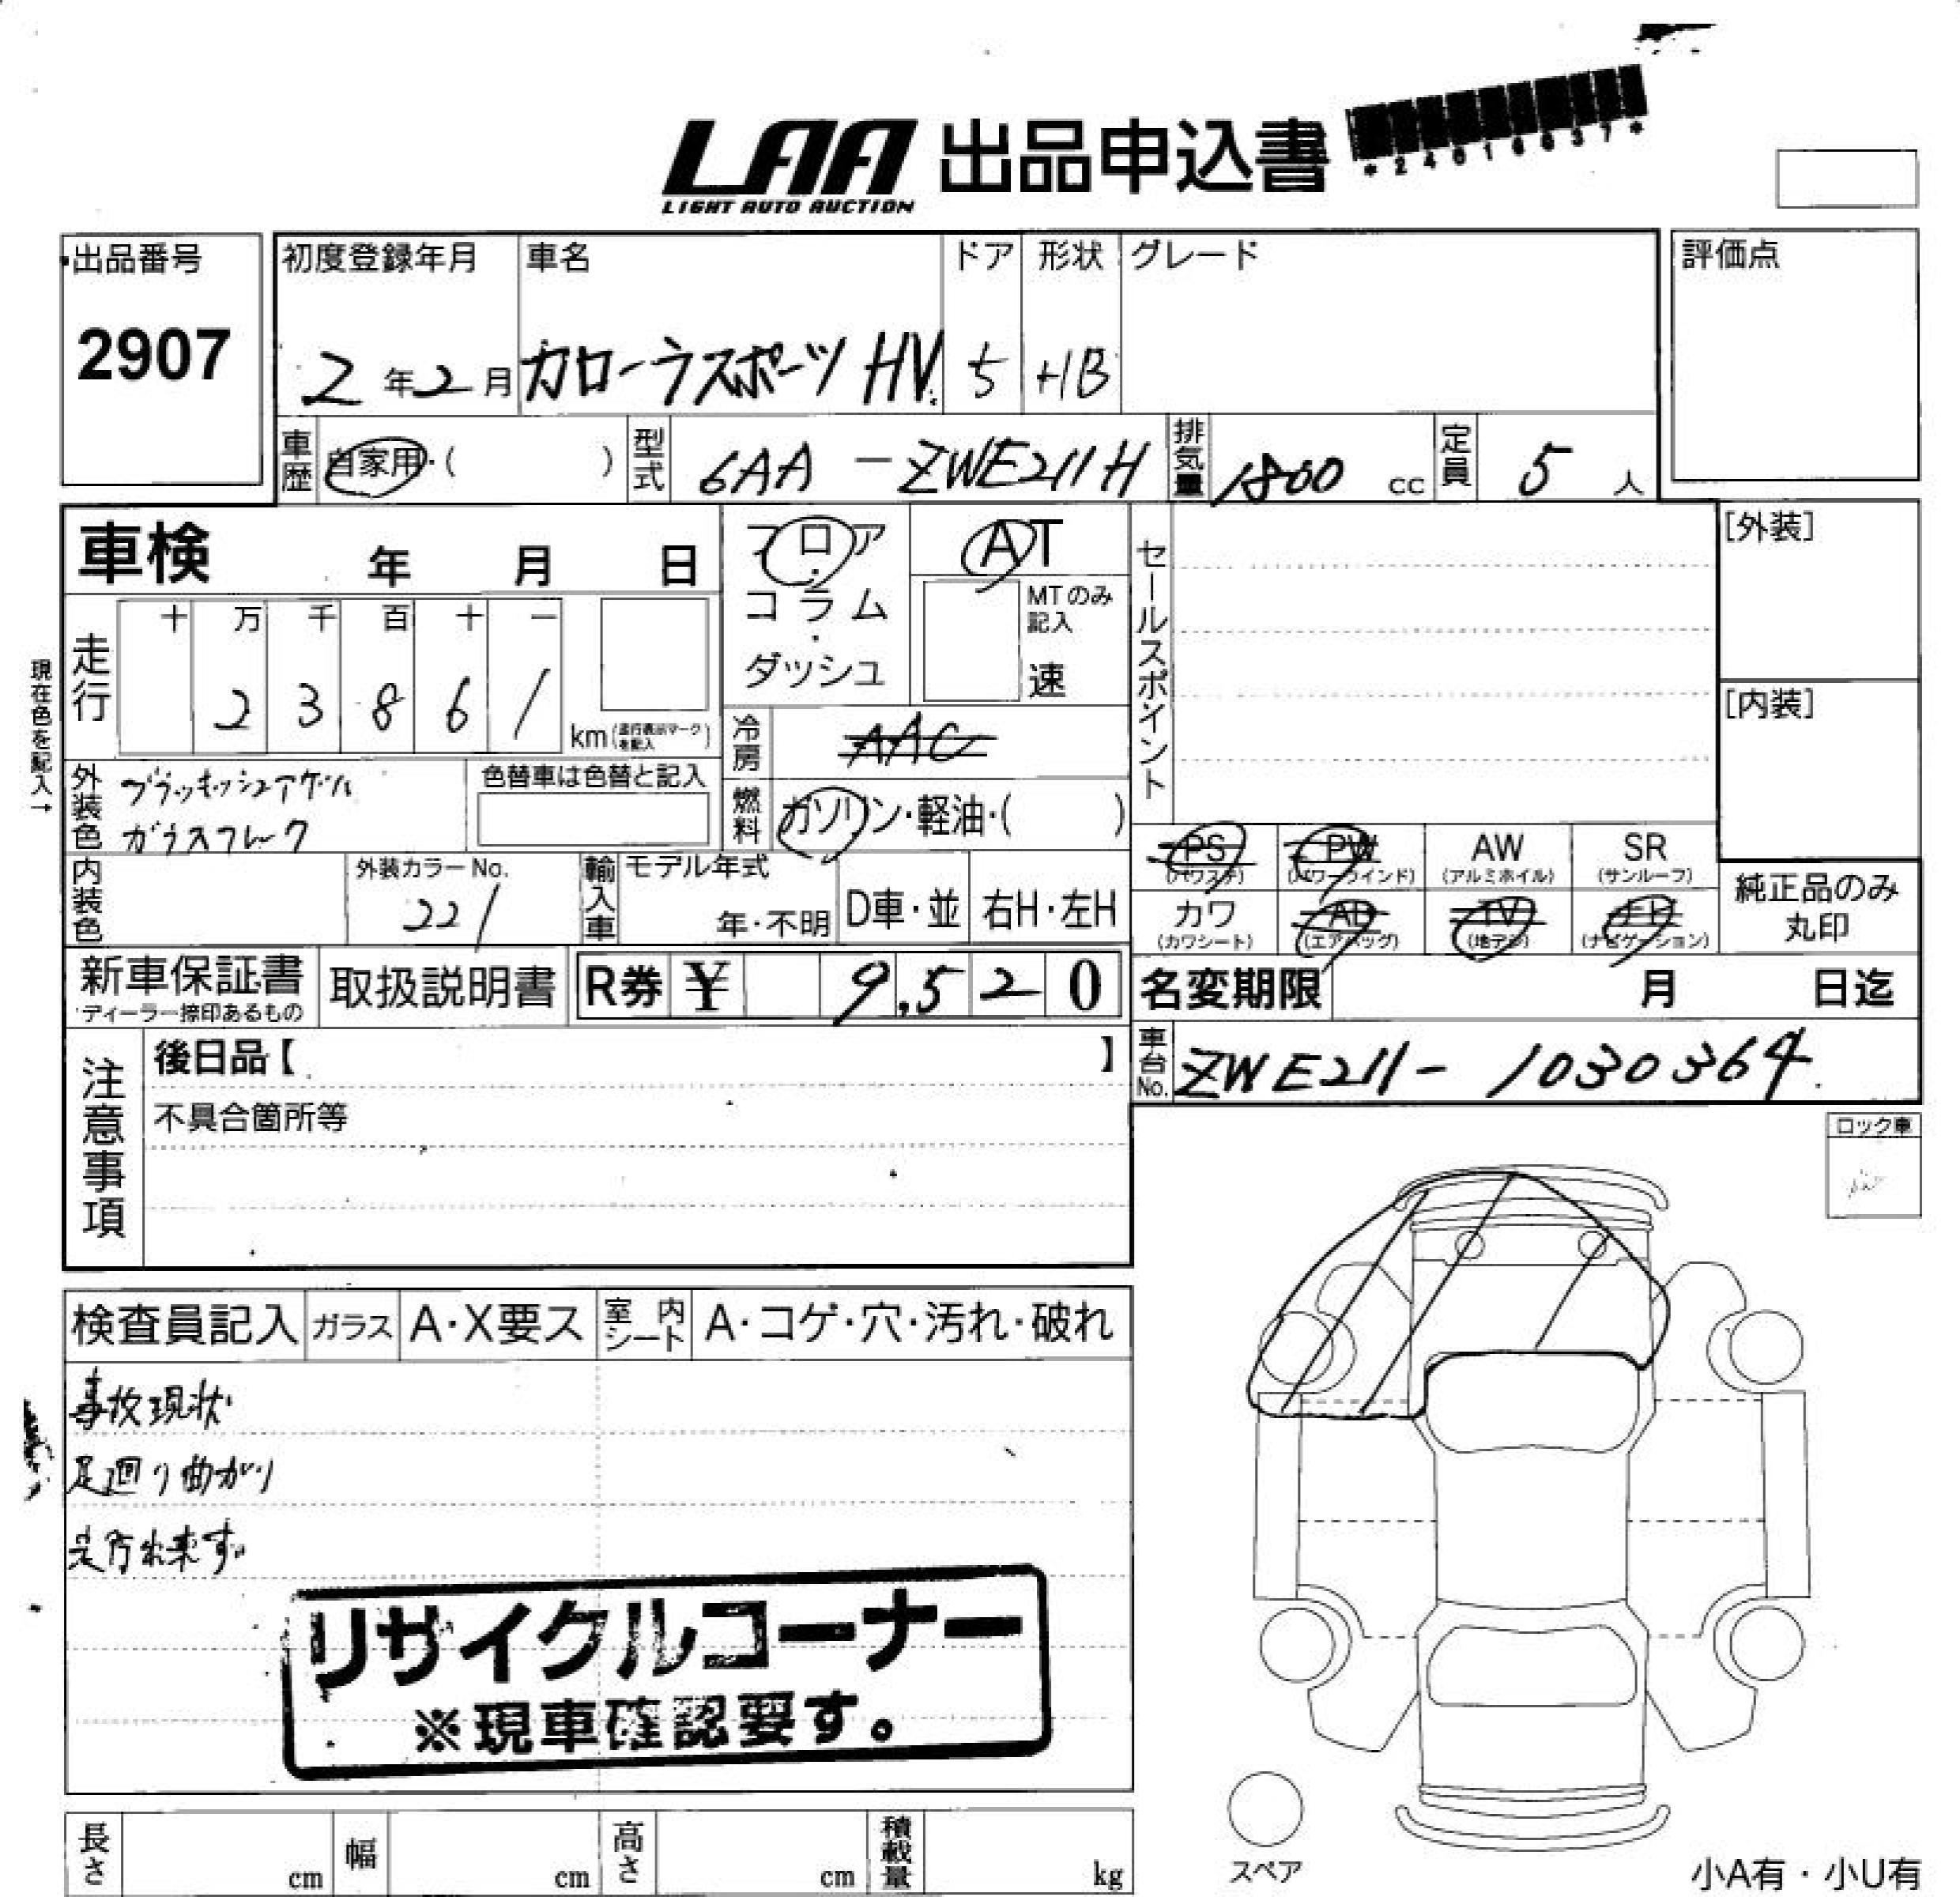 LAA 出品申込書
LIGHT AUTO AUCTION
出品番号 初度登録年月 車名 ドア 形状 グレード 評価点
2907 2年2月 カローラスポーツ HV. 5 HB
車歴 自家用・( ) 型式 6AA-ZWE211H 排気量 1800 cc 定員 5 人
車検 年 月 日 フロア・コラム・ダッシュ AT セールスポイント [外装]
MTのみ記入 速
現在色を記入→
走行 十 万 千 百 十 一
2 3 8 6 1 km(走行表示マークを記入)
[内装]
冷房 AAC
外装色 ブラッキッシュアゲハ
ガラスフレーク
色替車は色替と記入
燃料 ガソリン・軽油・( )
PS (パワステ) PW (パワーウインド) AW (アルミホイル) SR (サンルーフ)
内装色 外装カラーNo. 221 輸入車 モデル年式 年・不明 D車・並 右H・左H
カワ (カワシート) (エアバッグ) TV (地デジ) (ナビゲーション) 純正品のみ丸印
新車保証書 取扱説明書 R券 ¥ 9,520 名変期限 月 日迄
ディーラー捺印あるもの
注意事項 後日品【 】 車台No. ZWE211-1030364
不具合箇所等
ロック車
検査員記入 ガラス A・X要ス 室内シート A・コゲ・穴・汚れ・破れ
事故現状
足廻り曲がり
走行出来ず。
リサイクルコーナー
※現車確認要す。
長さ cm 幅 cm 高さ cm 積載量 kg
スペア
小A有・小U有